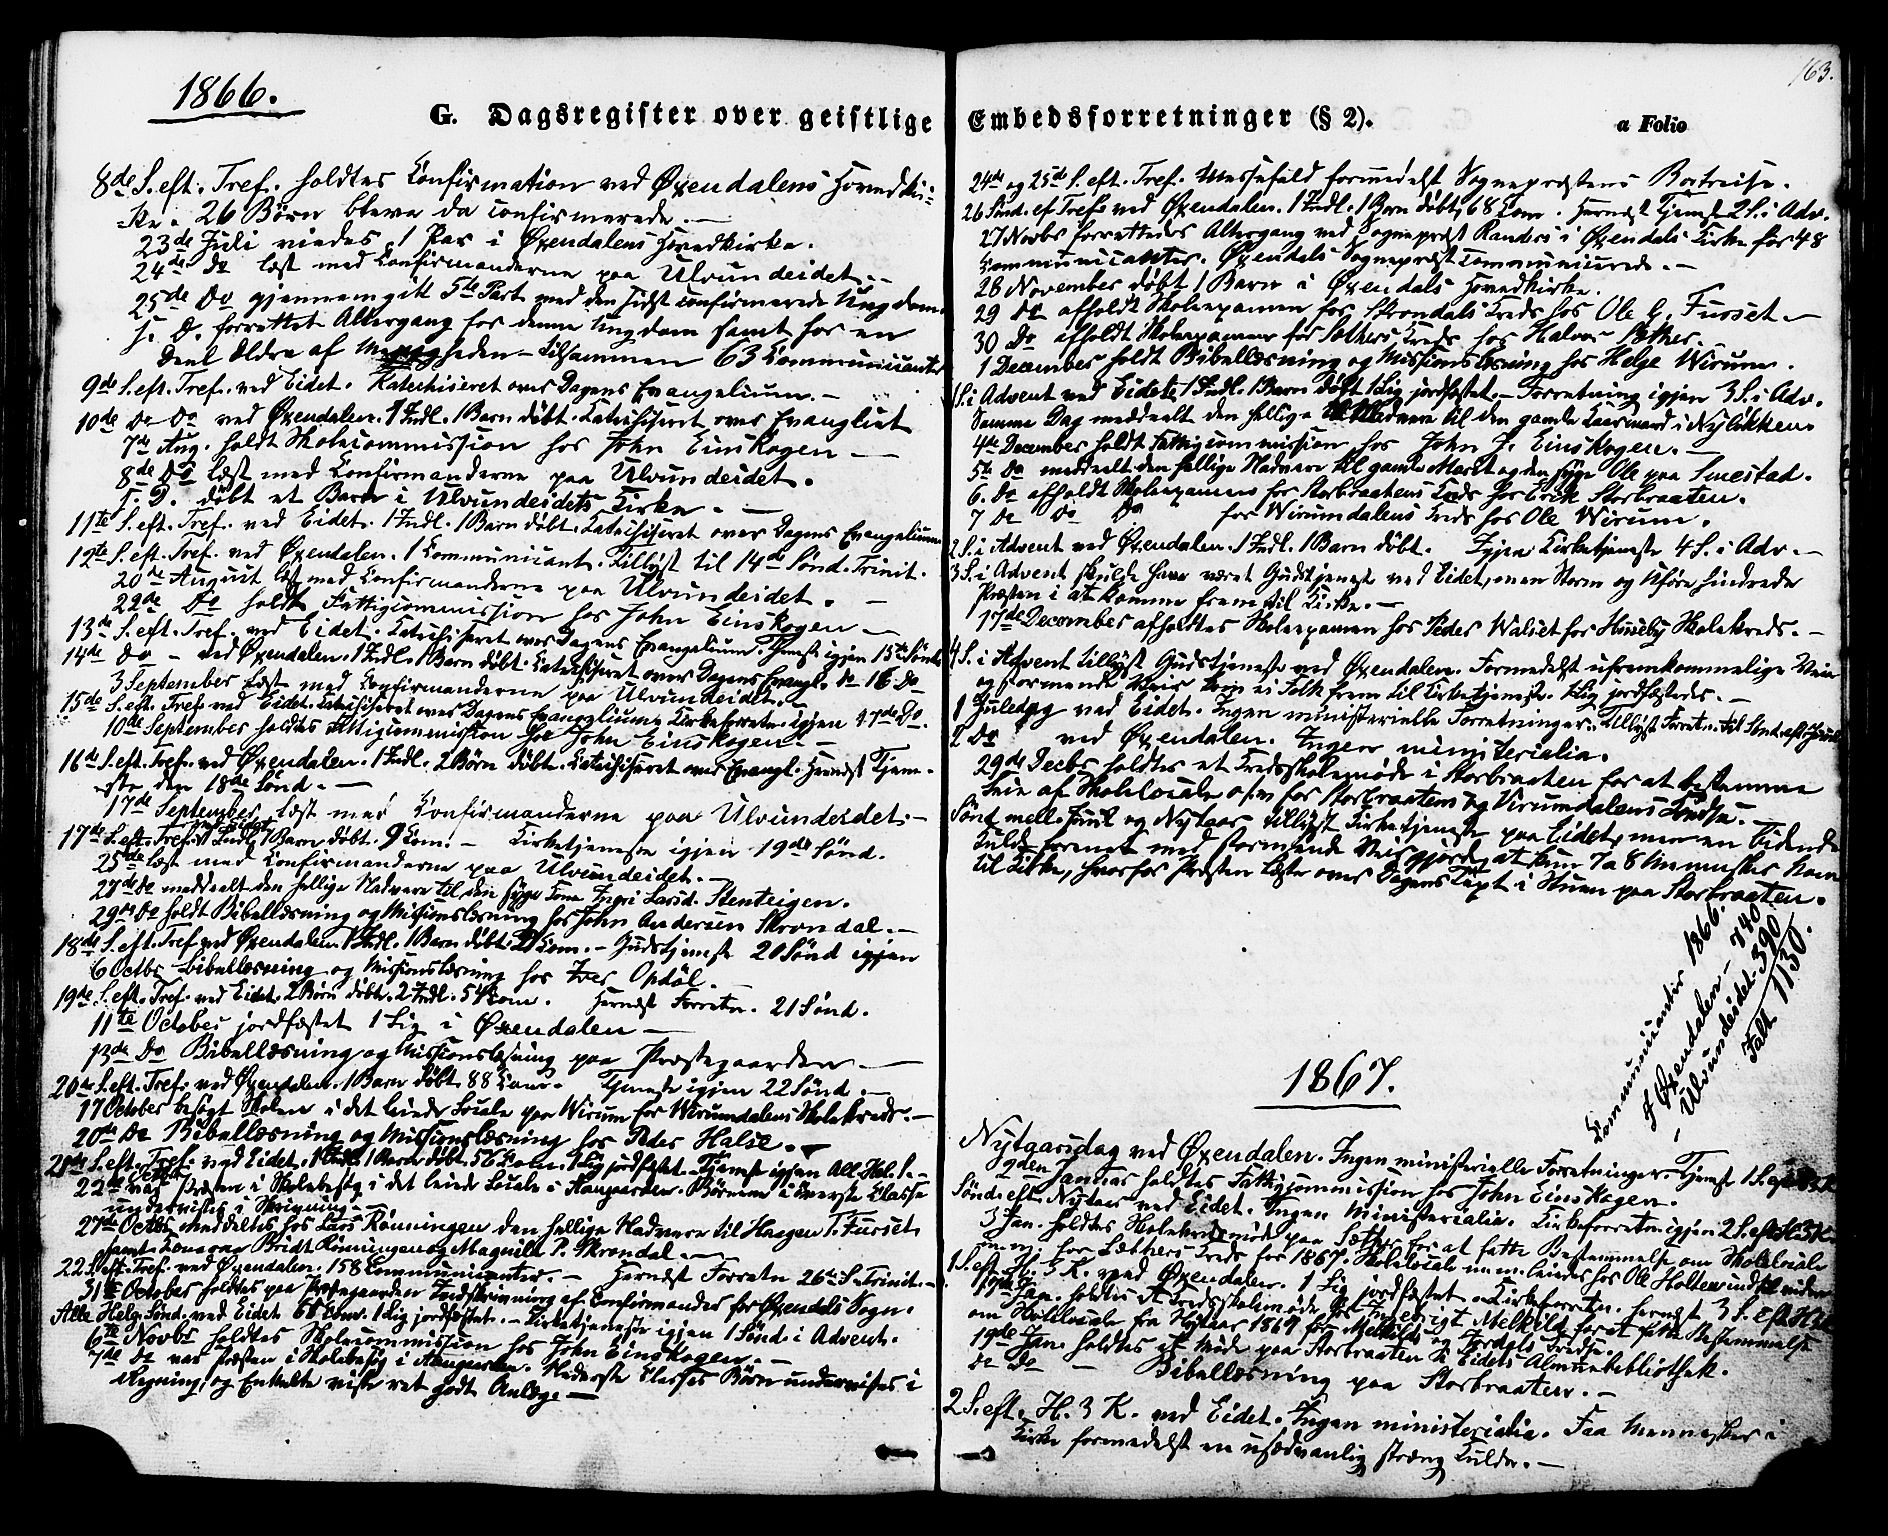 1866.
G. Dagsregister over geistlige
8de S. eft. Tref. holdtes Confirmation ved Øxendalens Hovedkir-
ke. 26 Børn bleve da confirmerede. —
23de Juli viedes 1 Par i Øxendalens Hovedkirke.
24de Do læst med Confirmanderne paa Ulvundeidet. —
25de Do gjennemgik 5te Part med den sidst confirmerede Ungdom.
s. D. forrettet Altergang for denne Ungdom samt for en
Deel Ældre af Menigheden — tilsammen 63 Communicanter
9de S. eft. Tref. ved Eidet. Katechiseret over Dagens Evangelium. —
10de Do Do ved Øxendalen. 1 Indl. 1 Barn døbt. Catechiseret over Evangliet
7de Aug. holdt Skolecommission hos John Einskogen —
8de Do læst med Confirmanderne paa Ulvundeidet.
s. D. døbt et Barn i Ulvundeidets Kirke. —
11te S. eft. Tref. ved Eidet. 1 Indl. 1 Barn døbt. Catechiseret over Dagens Evangelium
12te S. eft. Tref. ved Øxendalen. 1 Communicant. Tillyst til 14de Sønd. Trinit.
20de August læst med Confirmanderne paa Ulvundeidet. —
22de Do holdt Fattigcommission hos John Einskogen —
13de S. eft. Tref. ved Eidet. Catechiseret over Dagens Evangelium. Tjeneste igjen 15te Sønd.
14de Do — ved Øxendalen. 1 Indl. 1 Barn døbt. Catechiseret over Dagens Evangl. Do 16 Do
3 September læst med Confirmanderne paa Ulvundeidet. —
15de S. eft. Tref. ved Eidet. Catechiseret over Dagens Evangelium. Kirkeforretn. igjen 17de Do.
10de September holdtes Fattigcommission hos John Einskogen. —
16de S. eft. Tref. ved Øxendalen. 1 Indl. 2 Børn døbt. Catechiseret over Evangl. Herudst Tjene-
ste den 18de Sønd. —
17de September læst med Confirmanderne paa Ulvundeidet. —
17de S. eft. Tref. ved Eidet 1 Indl. 1 Barn døbt. 9 Com. — Kirketjeneste igjen 19de Sønd.
25de læst med Confirmanderne paa Ulvundeidet. —
27de Do meddeelt den hellige Nadvere til den syge Kone Ingri Larsd. Stenteigen.
29de Do holdt Bibellæsning og Missionslæsning hos John Andersen Skrondal. —
18de S. eft. Tref ved Øxendalen 1 Indl. 1 Barn døbt. 21 Com. — Gudstjeneste 20 Sønd igjen
6 Octbr Bibellæsning og Missionslæsning hos Iver Opdøl. —
19de S. eft. Tref. ved Eidet. 2 Børn døbt. 2 Indl. 54 Com. Herudst Forretn. 21 Sønd.
11te October jordfæstet 1 Lig i Øxendalen —
13de Do Bibellæsning og Missionslæsning paa Præstegaarden —
20de S. eft. Tref. ved Øxendalen. 1 Barn døbt. 88 Com. Tjeneste igjen 22 Sønd. —
17 October besøgt Skolen i det leiede Locale paa Wirum for Wirumdalens Skolekreds. —
20de Do Bibellæsning og Missionslæsning hos Peder Halse. —
21de S. eft. Tref. ved Eidet. 1 Indl. 1 Barn døbt. 56 Com. 1 Lig jordfæstet. Tjeneste igjen All. Hel. S. —
22de October var Præsten i Skolebesøg i det leiede Locale i Haugaarden. Børnene i øverste Classe
undervistes i Skrivning. —
27de Octbr. meddeltes hos Lars Rønningen den hellige Nadvere til Haagen T. Furset
samt Konerne Bridt Rønningen og Magnild P. Skrondal. —
22 S. eft. Tref. ved Øxendalen. 158 Communicanter. — Herudst Forretn 26de S. Trinit. —
31te October holdtes paa Præstegaarden Indskrivning af Confirmander for Øxendals Sogn.
Alle Helg. Sønd. ved Eidet 58 Com. 1 Lig jordfæstet. — Kirketjeneste igjen 1 Sønd. i Advent.
6te Novbr holdtes Skolecommission hos John Einskogen. —
7de Do var Præsten i Skolebesøg i Haugaarden. Nederste Classes Børn undervistes i
Regning, og Enkelte viste ret godt Anlæg. —
163.
Embedsforretninger (§ 2).
a Folio
24de og 25de S. eft. Tref. Messefald formedelst Sognepræstens Bortreise.
26 Sønd. ef Tref. ved Øxendalen. 1 Indl. 1 Barn døbt, 68 Com. Herudst Tjenest 2 S. i Adv.
27 Novbr forrettedes Altergang ved Sognepræst Randers i Øxendals Kirke for 48
Communicanter. Øxendals Sognepræst communicerede. —
28 November døbt 1 Barn i Øxendals Hovedkirke.
29 Do afholdt Skoleexamen for Skrondals Kreds hos Ole G. Furset. —
30 Do afholdt Skoleexamen for Sæthers Kreds hos Halvor Sæther. —
1 December holdt Bibellæsning og Missionslæsning hos Helge Wirum.
1 S. i Advent ved Eidet. 1 Indl. 1 Barn døbt 1 Lig jordfæstet. — Forretning igjen 3 S. i Adv.
Samme Dag meddeelt den hellige Nadvere til den gamle Leermand i Nyløkken.
4de December holdt Fattigcommission hos John J. Einskogen. —
5te Do meddeelt den hellige Nadvere til gamle Maret og den syge Ole paa Smestad.
6. Do afholdt Skoleexamen for Storbraatens Kreds hos Erik Storbraaten.
7 Do Do Do for Wirumdalens Kreds hos Ole Wirum.
2 S. i Advent ved Øxendalen. 1 Indl. 1 Barn døbt. Igjen Kirketjeneste 4 S. i Adv. —
3 S. i Advent skulde have været Gudstjeneste ved Eidet, men Storm og Uføre hindrede
Præsten i at komme frem til Kirke. —
17de December afholdtes Skoleexamen hos Peder Walset for Huseby Skolekreds. —
4 S. i Advent tillyst Gudstjeneste ved Øxendalen. Formedelst ufremkommelige Veie
og stormende Veir kom ei Folk frem til Kirketjeneste. 1 Lig jordfæstedes. —
1 Juledag ved Eidet. Ingen ministerielle Forretninger. Tillyst Forretn. til Sønd. eft. Juul
2 Do ved Øxendalen. Ingen ministerialia.
29de Decbr holdtes et Kredsskolemøde i Storbraaten for at bestemme
Leie af Skolelocale o. s. v. for Storbraatens og Virumdalens Kredse. —
Sønd. mell. Juul og Nytaar tillyst Kirketjeneste paa Eidet, men en bidende
Kulde forenet med stormende Veir gjorde, at kun 7 a 8 Mennesker kom
til Kirke, hvorfor Præsten læste over Dagens Text i Stuen paa Storbraaten.
Communicanter 1866.
I Øxendalen — 740
— Ulvundeidet — 390
Talt 1130.
1867.
Nytaarsdag ved Øxendalen. Ingen ministerielle Forretninger. Tjenest 1 S. eft. H. 3 K.
2den Januar holdtes Fattigcommission hos John Einskogen.
Sønd. eft. Nytaar ved Eidet. Ingen Ministerialia. Kirkeforretn. igjen 2 S. eft. H. 3 K.
3 Jan. holdtes Skolekredsmøde paa Sæther for at fatte Bestemmelse om Skolelocale
for Sæthers Kreds for 1867. Skolelocale leiedes hos Ole Holten indtil videre
1 S. eft. H. 3 K. ved Øxendalen. 1 Lig jordfæstet. — Kirkeforretn. herudst 3 S. eft. H. 3 K.
17de Jan. holdtes et Kredsskolemøde hos Ingebrigt Melkild for at fatte Bestemmelse
om Skolelocale fra Nytaar 1867 for Melkilds og Jordals Kredse.
19de Jan. holdtes et Møde paa Storbraaten i Eidets Almuebibliothek.
Do Do — Bibellæsning paa Storbraaten. —
2 S. eft. H. 3 K. ved Eidet. Ingen ministerialia. Faa Mennesker i
Kirke formedelst en usædvanlig stræng Kulde. —